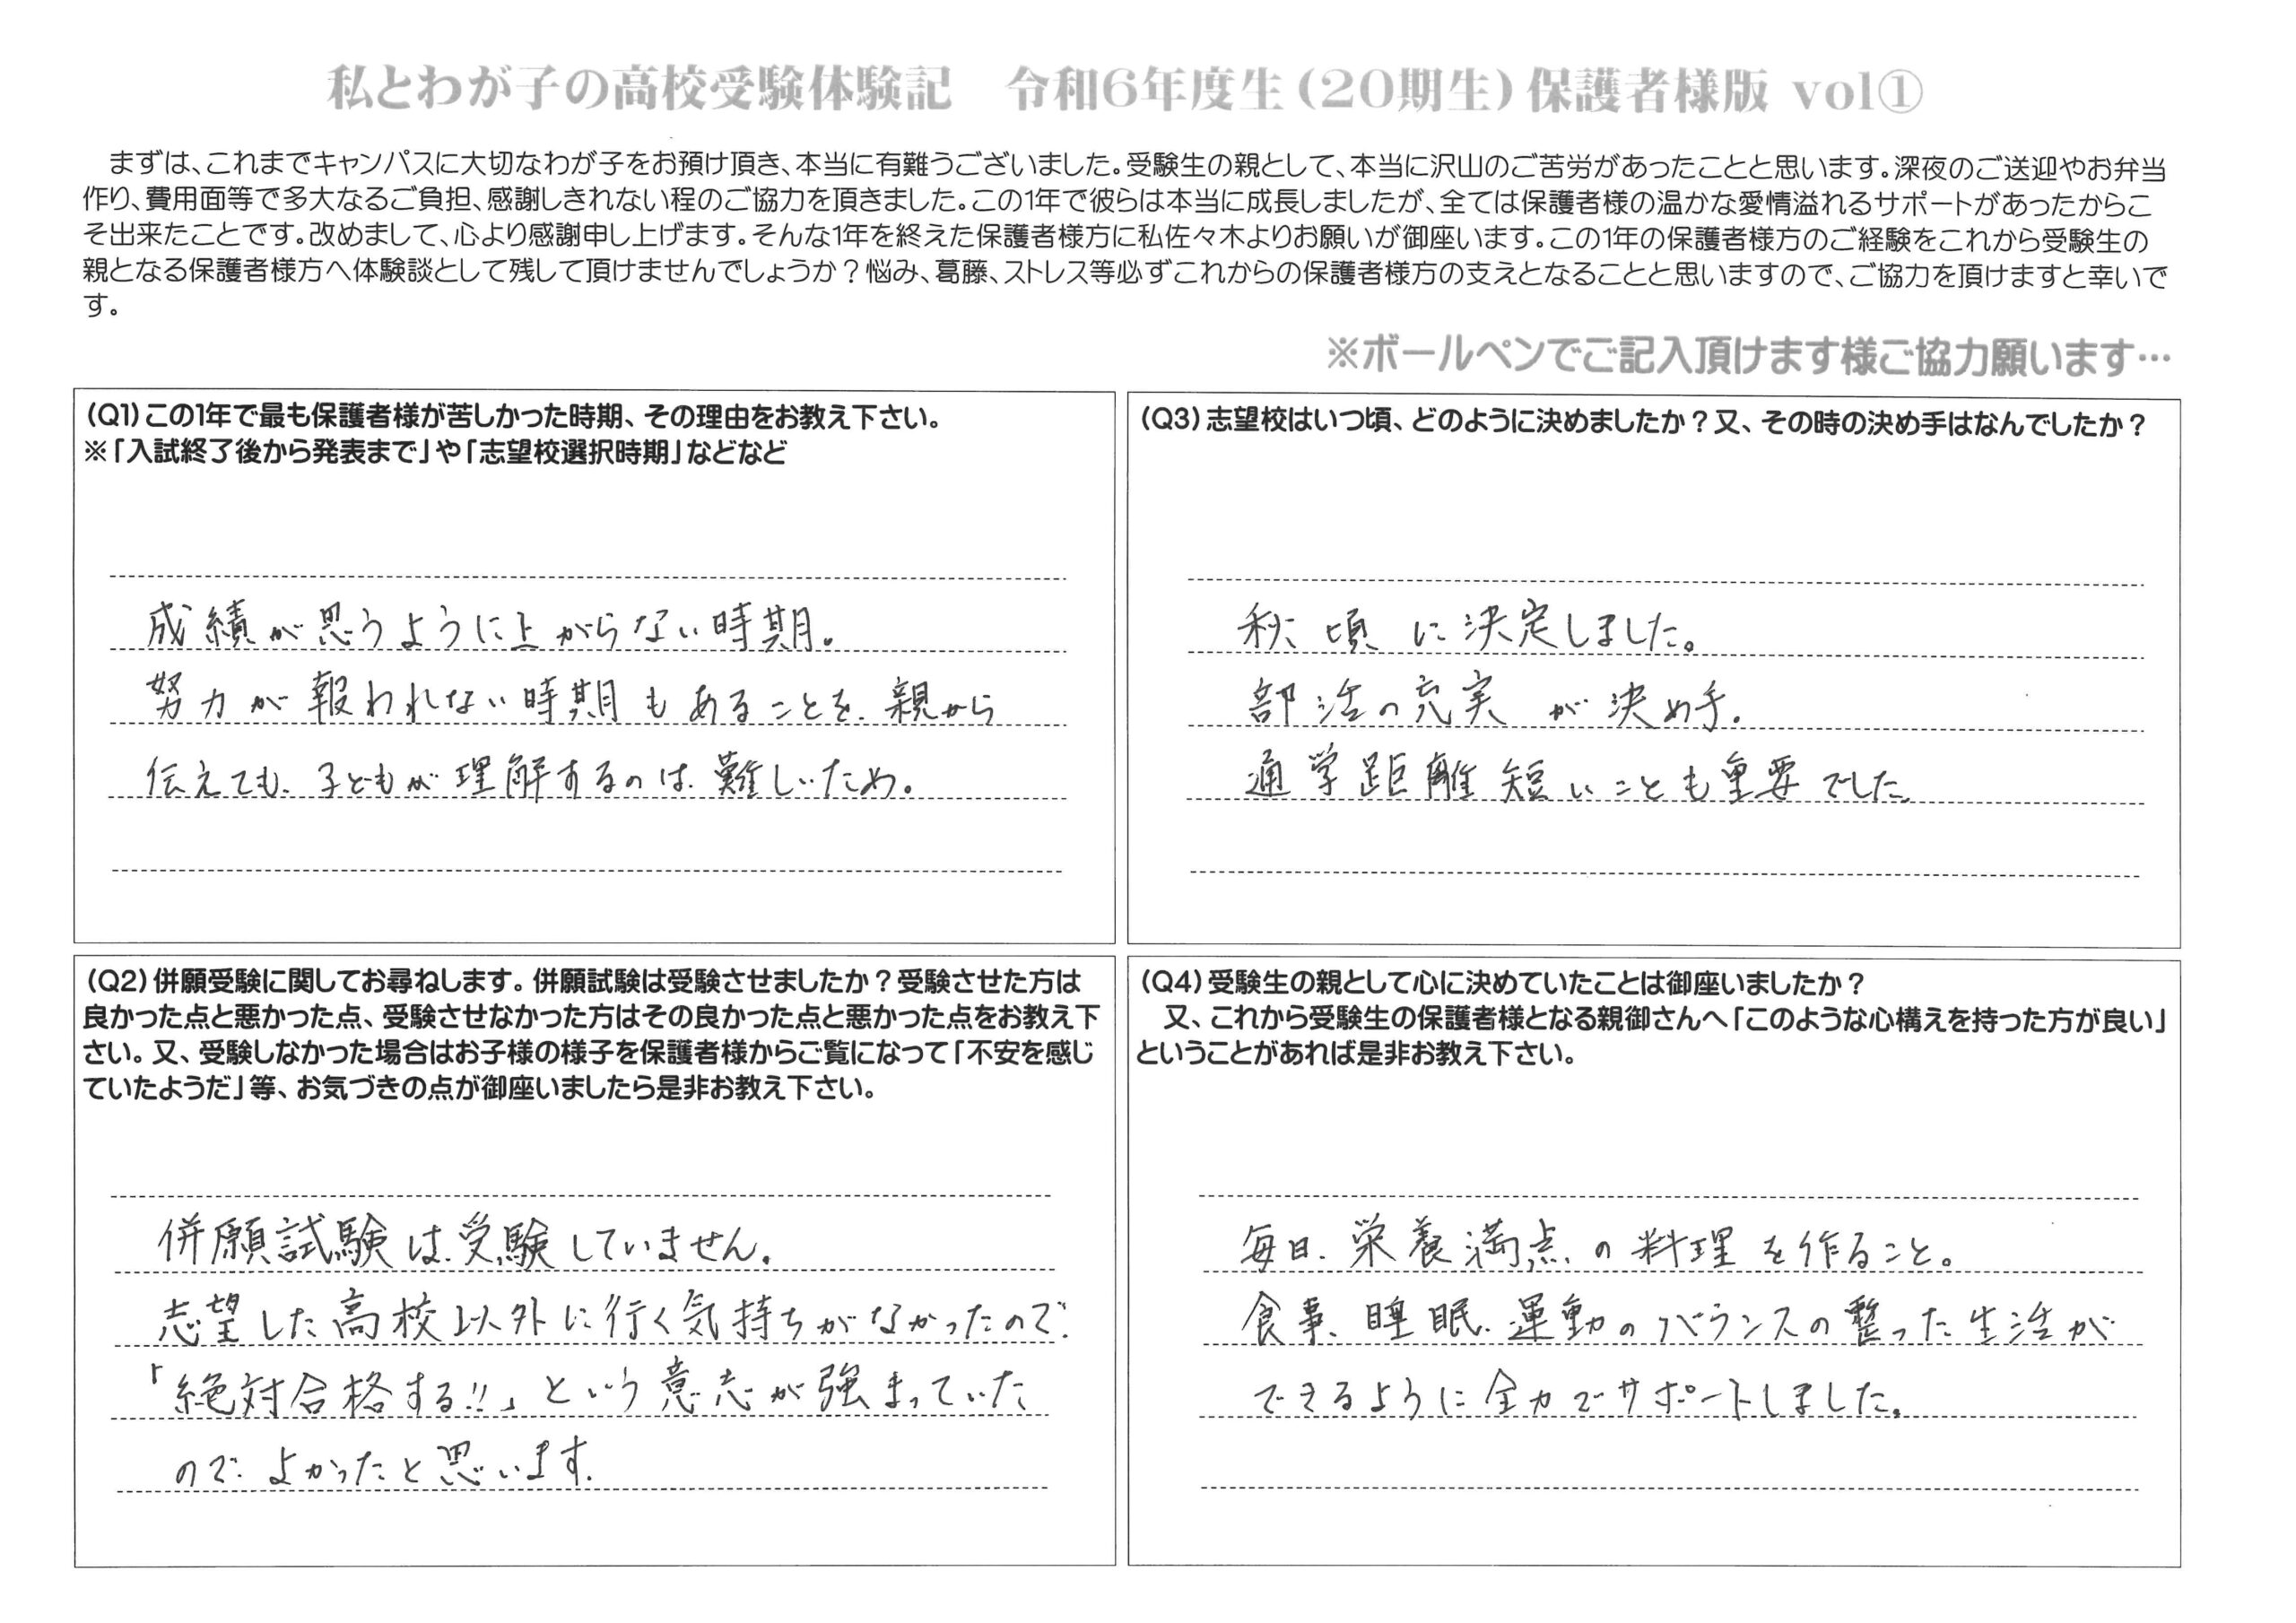 私とわが子の高校受験体験記　令和6年度生（20期生）保護者様版 vol①
まずは、これまでキャンパスに大切なわが子をお預け頂き、本当に有難うございました。受験生の親として、本当に沢山のご苦労があったことと思います。深夜のご送迎やお弁当
作り、費用面等で多大なるご負担、感謝しきれない程のご協力を頂きました。この1年で彼らは本当に成長しましたが、全ては保護者様の温かな愛情溢れるサポートがあったからこ
そ出来たことです。改めまして、心より感謝申し上げます。そんな1年を終えた保護者様方に私佐々木よりお願いが御座います。この1年の保護者様方のご経験をこれから受験生の
親となる保護者様方へ体験談として残して頂けませんでしょうか？悩み、葛藤、ストレス等必ずこれからの保護者様方の支えとなることと思いますので、ご協力を頂けますと幸いで
す。
※ボールペンでご記入頂けます様ご協力願います…
（Q1）この1年で最も保護者様が苦しかった時期、その理由をお教え下さい。
※「入試終了後から発表まで」や「志望校選択時期」などなど
成績が思うように上がらない時期。
努力が報われない時期もあることを、親から
伝えても、子どもが理解するのは、難しいため。
（Q2）併願受験に関してお尋ねします。併願試験は受験させましたか？受験させた方は
良かった点と悪かった点、受験させなかった方はその良かった点と悪かった点をお教え下
さい。又、受験しなかった場合はお子様の様子を保護者様からご覧になって「不安を感じ
ていたようだ」等、お気づきの点が御座いましたら是非お教え下さい。
併願試験は、受験していません。
志望した高校以外に行く気持ちがなかったので、
「絶対合格する!!」という意志が強まっていた
ので、よかったと思います。
（Q3）志望校はいつ頃、どのように決めましたか？又、その時の決め手はなんでしたか？
秋頃に決定しました。
部活の充実が決め手。
通学距離短いことも重要でした。
（Q4）受験生の親として心に決めていたことは御座いましたか？
又、これから受験生の保護者様となる親御さんへ「このような心構えを持った方が良い」
ということがあれば是非お教え下さい。
毎日、栄養満点の料理を作ること。
食事、睡眠、運動のバランスの整った生活が
できるように全力でサポートしました。